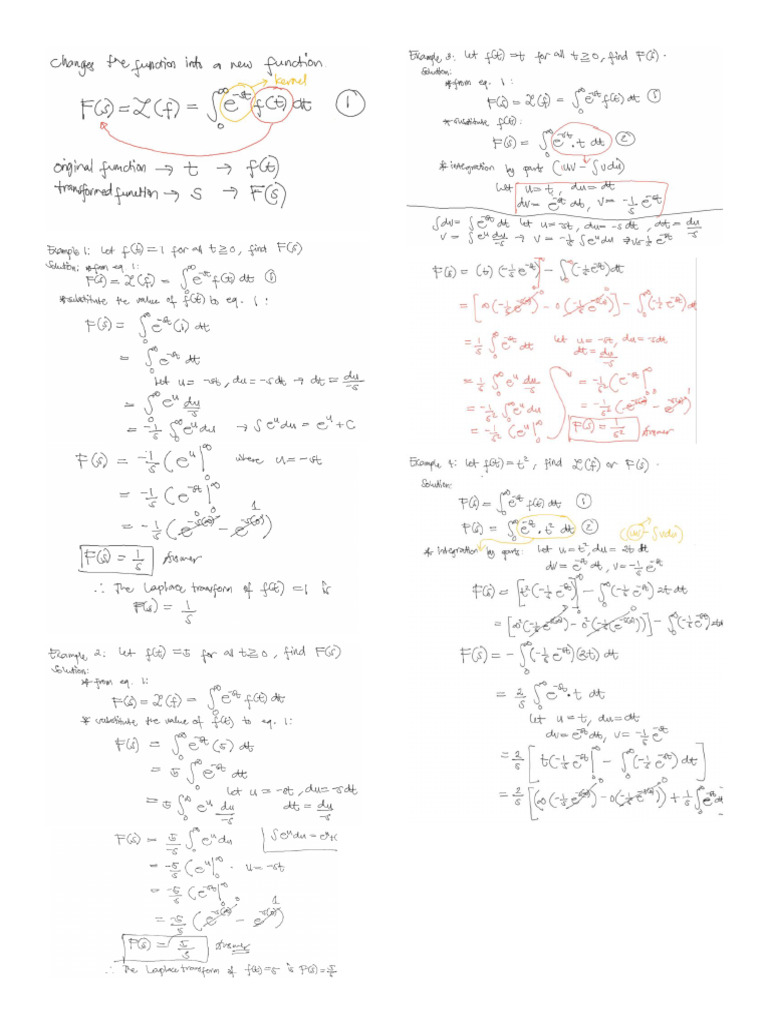 Changes the function into a new function.
→ kernel
F(s) = ℒ(f) = ∫₀^∞ e^-st f(t) dt ①
original function → t → f(t)
transformed function → s → F(s)
Example 1: Let f(t) = 1 for all t ≥ 0, find F(s)
Solution: *from eq. 1:
F(s) = ℒ(f) = ∫₀^∞ e^-st f(t) dt ①
*substitute the value of f(t) to eq. 1:
F(s) = ∫₀^∞ e^-st (1) dt
= ∫₀^∞ e^-st dt
Let u = -st, du = -sdt → dt = du/-s
= ∫₀^∞ e^u du/-s
= -1/s ∫₀^∞ e^u du → ∫e^u du = e^u + C
F(s) = -1/s (e^u |₀^∞ where u = -st
= -1/s (e^-st |₀^∞
= -1/s (e^-s(∞) - e^-s(0)) 0 1
F(s) = 1/s Answer
∴ The Laplace transform of f(t) = 1 is
F(s) = 1/s
Example 2: Let f(t) = 5 for all t ≥ 0, find F(s)
Solution:
*from eq. 1:
F(s) = ℒ(f) = ∫₀^∞ e^-st f(t) dt
* substitute the value of f(t) to eq. 1:
F(s) = ∫₀^∞ e^-st (5) dt
= 5 ∫₀^∞ e^-st dt
Let u = -st, du = -sdt
= 5 ∫₀^∞ e^u du/-s dt = du/-s
F(s) = 5/-s ∫₀^∞ e^u du ∫e^u du = e^u+k
= -5/s (e^u |₀^∞ . u = -st
= -5/s (e^-st |₀^∞
= -5/s (e^-s(∞) - e^-s(0)) 0 1
F(s) = 5/s Answer
∴ The Laplace transform of f(t) = 5 is F(s) = 5/s
Example 3: Let f(t) = t for all t ≥ 0, find F(s).
Solution:
*from eq. 1:
F(s) = ℒ(f) = ∫₀^∞ e^-st f(t) dt ①
*substitute f(t):
F(s) = ∫₀^∞ e^-st . t dt ②
* integration by parts (uv - ∫vdu)
Let u = t, du = dt
dv = e^-st dt, v = -1/s e^-st
∫dv = ∫e^-st dt Let u = -st, du = -s dt, dt = du/-s
v = ∫e^u du/-s → v = -1/s ∫e^u du v = -1/s e^-st
F(s) = (t)(-1/s e^-st)|₀^∞ - ∫₀^∞ (-1/s e^-st) dt
= [∞(-1/s e^-s(∞)) - 0(-1/s e^-s(0))] - ∫₀^∞ (-1/s e^-st) dt
= 1/s ∫₀^∞ e^-st dt Let u = -st, du = -sdt
dt = du/-s
= 1/s ∫₀^∞ e^u du/-s = -1/s² (e^-st |₀^∞
= -1/s² ∫₀^∞ e^u du = -1/s² (e^-s(∞) - e^-s(0)) 0 1
= -1/s² (e^u |₀^∞ F(s) = 1/s² Answer
Example 4: Let f(t) = t², find ℒ(f) or F(s).
Solution:
F(s) = ∫₀^∞ e^-st f(t) dt ①
F(s) = ∫₀^∞ e^-st . t² dt ② (uv - ∫vdu)
* integration by parts: Let u = t², du = 2t dt
dv = e^-st dt, v = -1/s e^-st
F(s) = [t²(-1/s e^-st)]₀^∞ - ∫₀^∞ (-1/s e^-st) 2t dt
= [∞²(-1/s e^-s(∞)) - 0²(-1/s (e^-s(0)))] - ∫₀^∞ (-1/s e^-st) 2tdt
F(s) = - ∫₀^∞ (-1/s e^-st)(2t) dt
= 2/s ∫₀^∞ e^-st . t dt
Let u = t, du = dt
dv = e^-st dt, v = -1/s e^-st
= 2/s [t(-1/s e^-st |₀^∞ - ∫₀^∞ (-1/s e^-st) dt]
= 2/s [(∞(-1/s e^-s(∞)) - 0(-1/s e^-s(0))) + 1/s ∫₀^∞ e^-st dt